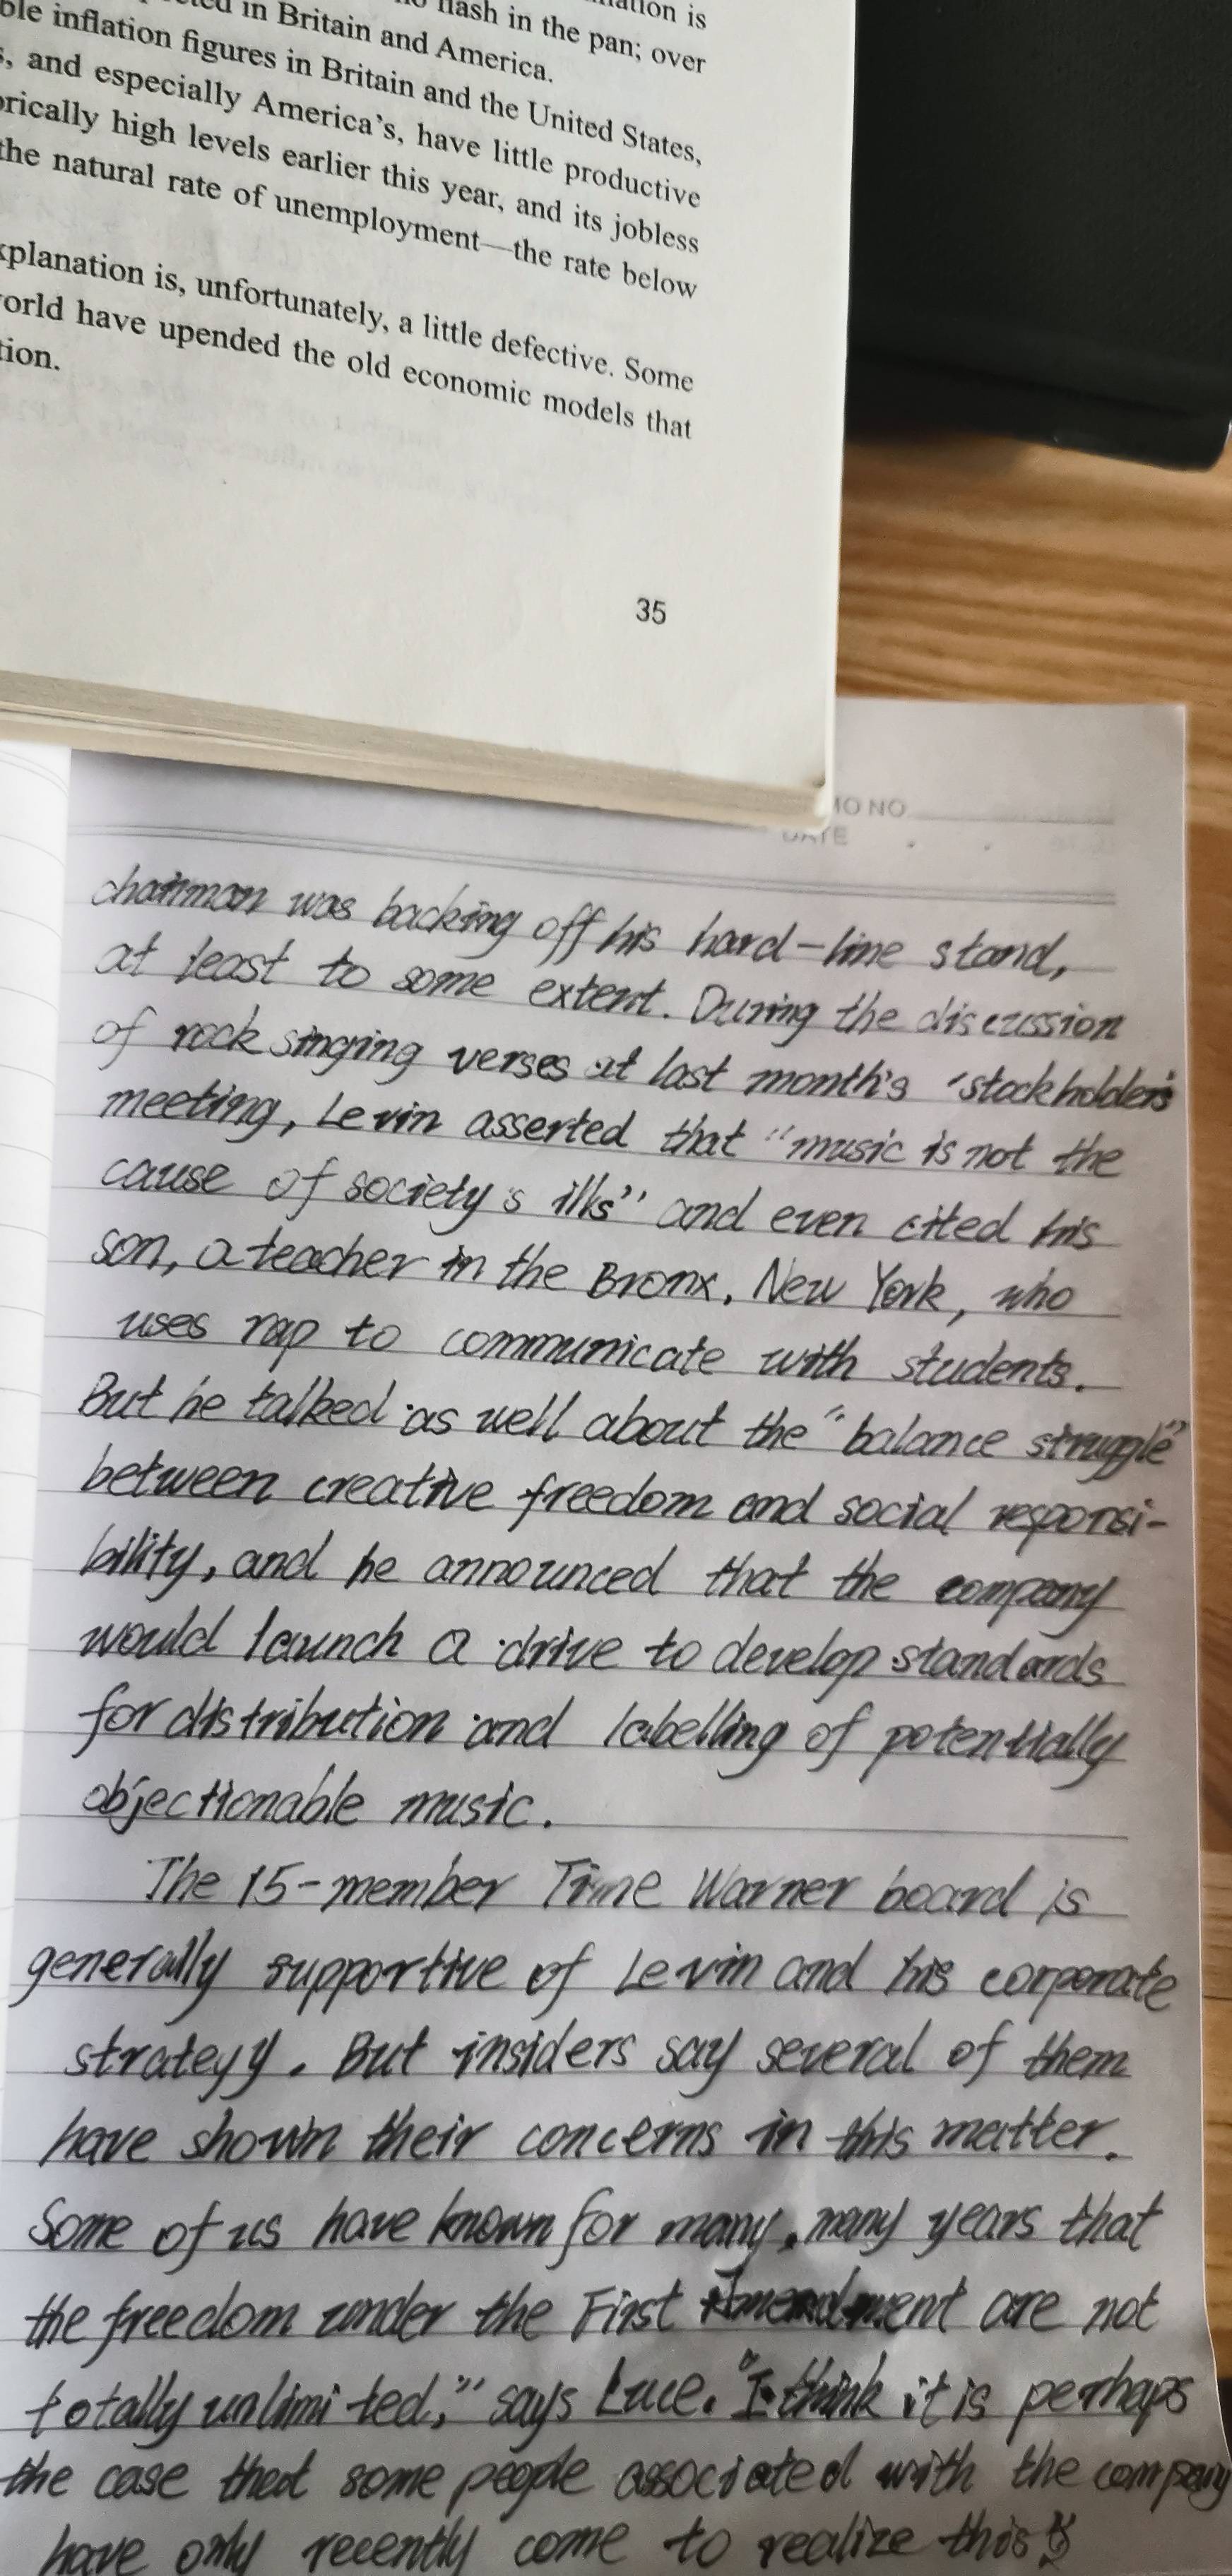 ation is
flash in the pan; over
in Britain and America.
ble inflation figures in Britain and the United States,
s, and especially America's, have little productive
orically high levels earlier this year, and its jobless
the natural rate of unemployment—the rate below
xplanation is, unfortunately, a little defective. Some
orld have upended the old economic models that
tion.
35
MO NO
DATE
chairman was backing off his hard-line stand,
at least to some extent. During the discussion
of rock singing verses at last month's stockholders
meeting, Levin asserted that "music is not the
cause of society's ills" and even cited his
son, a teacher in the Bronx, New York, who
uses rap to communicate with students.
But he talked as well about the "balance struggle"
between creative freedom and social responsi-
bility, and he announced that the company
would launch a drive to develop standards
for distribution and labelling of potentially
objectionable music.
The 15-member Time Warner board is
generally supportive of Levin and his corporate
strategy. But insiders say several of them
have shown their concerns in this matter.
Some of us have known for many, many years that
the freedom under the First Amendment are not
totally unlimited," says Luce. "I think it is perhaps
the case that some people associated with the company
have only recently come to realize this."